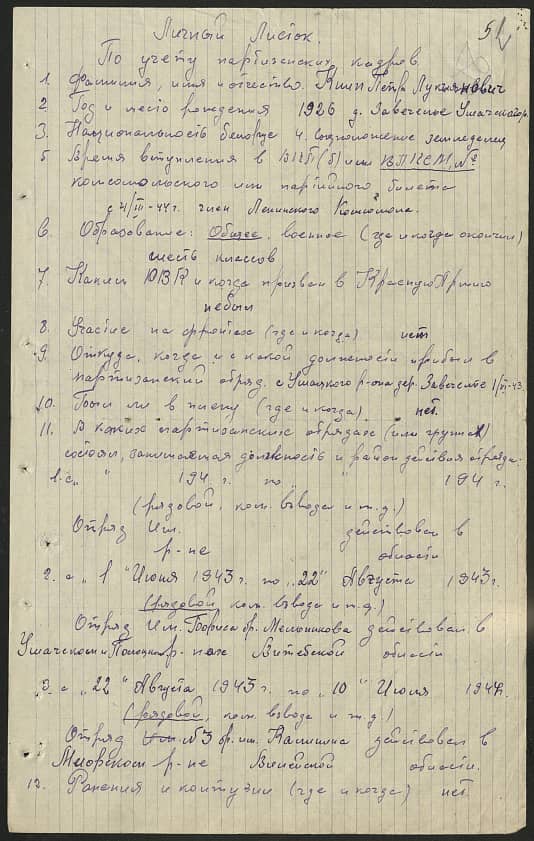 51
Личный Листок.
По учету партизанских кадров.
1. Фамилия, имя и отчество. Книп Петр Лукьянович
2. Год и место рождения 1926 д. Завечелье Ушачского р.
3. Национальность белорус 4. Соцположение земледелец
5 Время вступления в ВКП(б) или ВЛКСМ, №
комсомольского или партийного билета
с 4/III-44г. член Ленинского Комсомола.
6. Образование: Общее, военное (где и когда окончил)
шесть классов
7. Каким РВК и когда призван в Красную Армию
небыл
8. Участие на фронтах (где и когда) нет
9. Откуда, когда и с какой должности прибыл в
партизанский отряд. с Ушачкого р-она дер. Завечелье 1/VI-43.
10. Был ли в плену (где и когда) нет.
11. В каких партизанских отрядах (или группах)
состоял, занимающая должность и район действия отряда.
1. с " " 194 г. по " " 194 г.
(рядовой, ком. взвода и т.д.)
Отряд Им. действовал в
р-не области
2. с "1" Июня 1943 г. по "22" Августа 1943г.
(рядовой, ком. взвода и т.д.)
Отряд Им. Бориса бр. Мельникова действовал в
Ушачском и Полоцком р-нах Витебской области
3. с "22" Августа 1943 г. по "10" Июня 1944г.
(рядовой, ком. взвода и т.д.)
Отряд Им. №3 бр. им. Калинина действовал в
Миорском р-не Вилейской области.
12. Ранения и контузии (где и когда) нет.